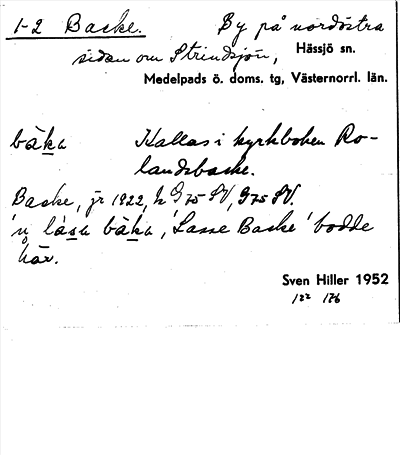 1-2 Backe. By på nordöstra
sidan om Strindsjön, Hässjö sn.
Medelpads ö. doms. tg, Västernorrl. län.
bàka Kallas i kyrkboken Ro-
landsbacke.
Backe, jr 1922, h G75 SV, G75 SV.
'n làsa bàka, 'Lasse Backe' bodde
här.
Sven Hiller 1952
122 176